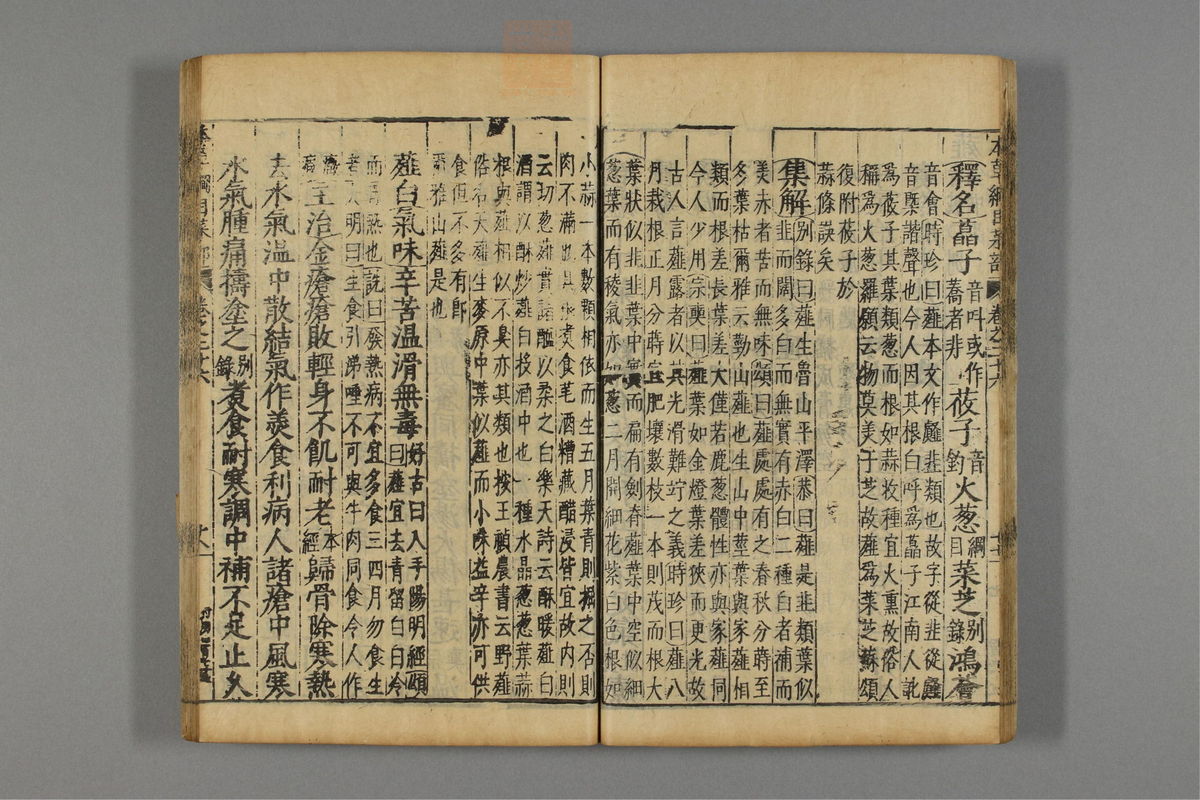 本草綱目菜部 卷之二十六
釋名藠子音叫或作蕎者非莜子音釣火葱綱目菜芝別錄鴻薈
音會時珍曰薤本文作䪥韭類也故字從韭從䪥
音槩諧聲也今人因其根白呼爲藠子江南人訛
爲莜子其葉類葱而根如蒜收種宜火熏故俗人
稱爲火葱羅願云物莫美于芝故薤爲菜芝蘇頌
復附莜子於
蒜條誤矣
集解別錄曰薤生魯山平澤恭曰薤是韭類葉似
韭而闊多白而無實有赤白二種白者浦而
美赤者苦而無味頌曰薤處處有之春秋分蒔至
冬葉枯爾雅云葝山薤也生山中莖葉與家薤相
類而根差長葉差大僅若鹿葱體性亦與家薤同
今人少用宗奭曰薤葉如金燈葉差狹而更光故
古人言薤露者以其光滑難竚之義時珍曰薤八
月栽根正月分蒔宜肥壤數枝一本則茂而根大
葉狀似韭韭葉中實而扁有劍脊薤葉中空似細
葱葉而有稜氣亦如葱二月開細花紫白色根如
小蒜一本數顆相依而生五月葉青則掘之否則
肉不滿也其根煑食芼酒糟藏醋浸皆宜故內則
云切葱薤實諸醯以柔之白樂天詩云酥暖薤白
酒謂以酥炒薤白投酒中也一種水晶葱葱葉蒜
根與薤相似不臭亦其類也按王禎農書云野薤
俗名天薤生麥原中葉似薤而小味益辛亦可供
食但不多有郎
爾雅山薤是也
薤白氣味辛苦温滑無毒好古曰入手陽明經頌曰薤宜去青留白白冷
而青熱也詵曰發熱病不宜多食三四月勿食生
者大明曰生食引涕唾不可與牛肉同食令人作
癥瘕主治金瘡瘡敗輕身不飢耐老本經歸骨除寒熱
去水氣温中散結氣作羙食利病人諸瘡中風寒
水氣腫痛擣塗之別錄煮食耐寒調中補不足止久
本草綱目菜部 卷之二十六